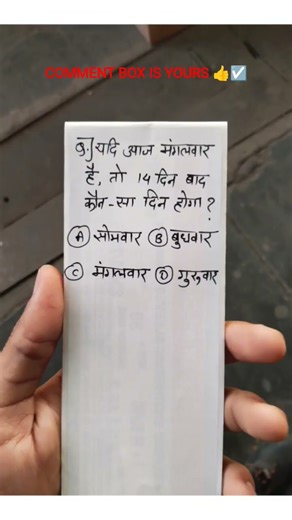 COMMENT BOX IS YOURS 👍☑️
Q.] यदि आज मंगलवार
है, तो 14 दिन बाद
कौन-सा दिन होगा?
Ⓐ सोमवार Ⓑ बुधवार
Ⓒ मंगलवार Ⓓ गुरुवार